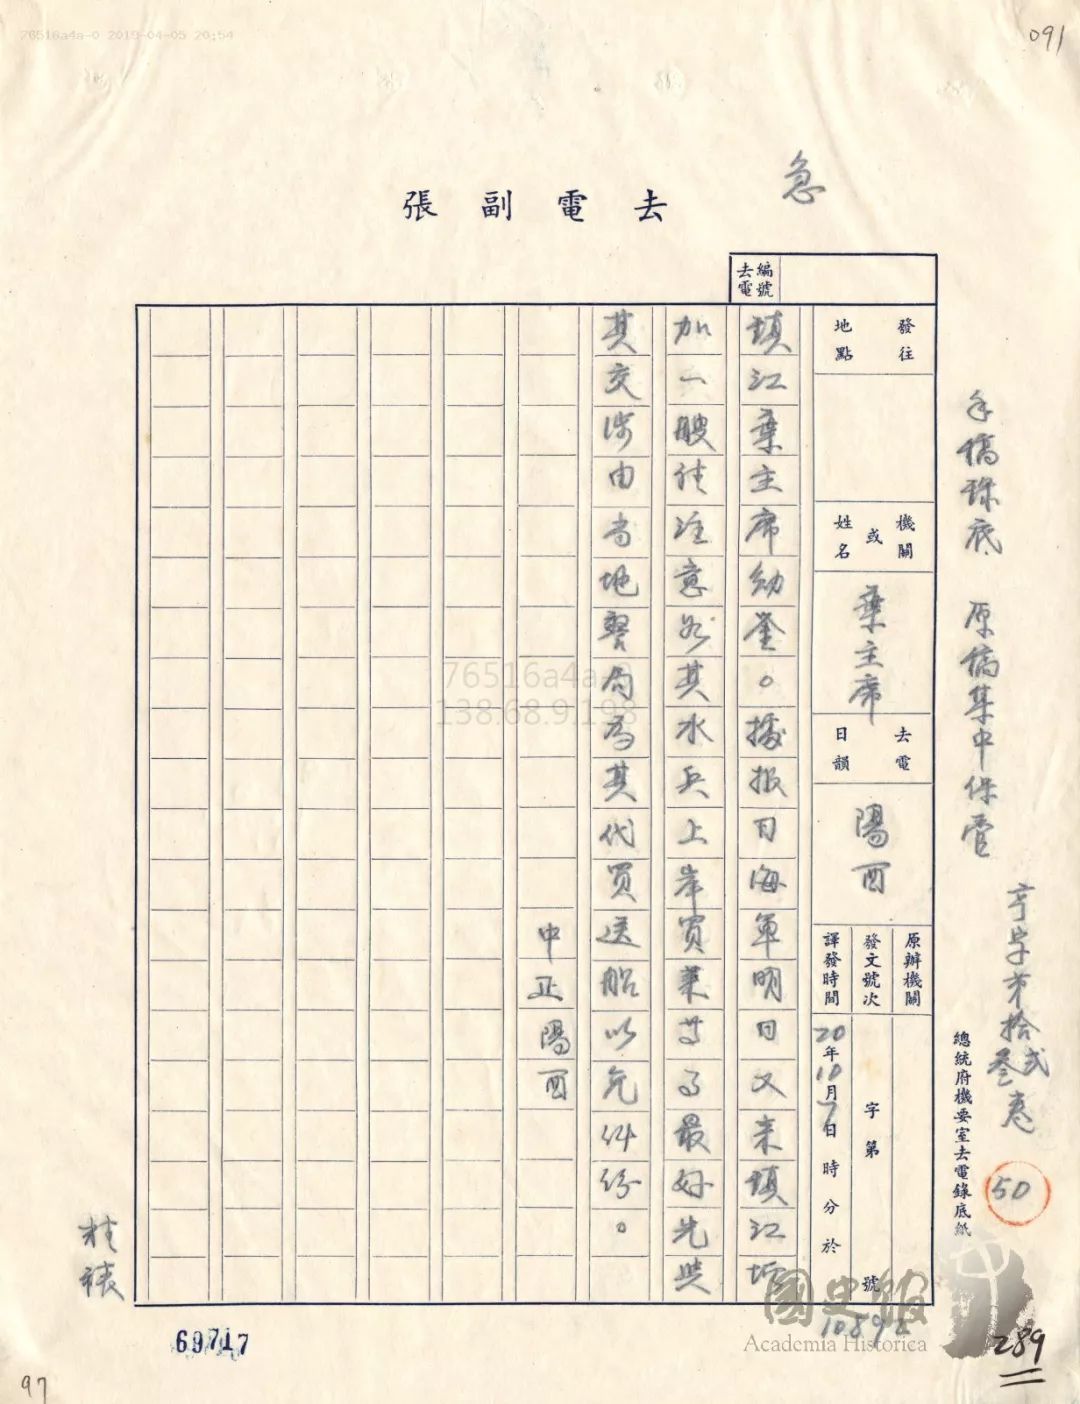 76516a4a-0 2019-04-05 20:54
091
急
去電副張
去電編號
發往地點
機關或姓名
葉主席
去電日韻
陽酉
原辦機關
發文號次
字第 號
譯發時間
20年10月7日 時 分於
鎮江葉主席勛鑒。據報日海軍明日又來鎮江
加一艘請注意於其水兵上岸買菜等事最好先與
其交涉由當地警局為其代買送船以免糾紛。
中正陽酉
手稿錄底 原稿集中保管
亨字第拾貳叄卷
50
總統府機要室去電錄底紙
76516a4a-0
138.68.9.198
國史館
Academia Historica
289
69717
97